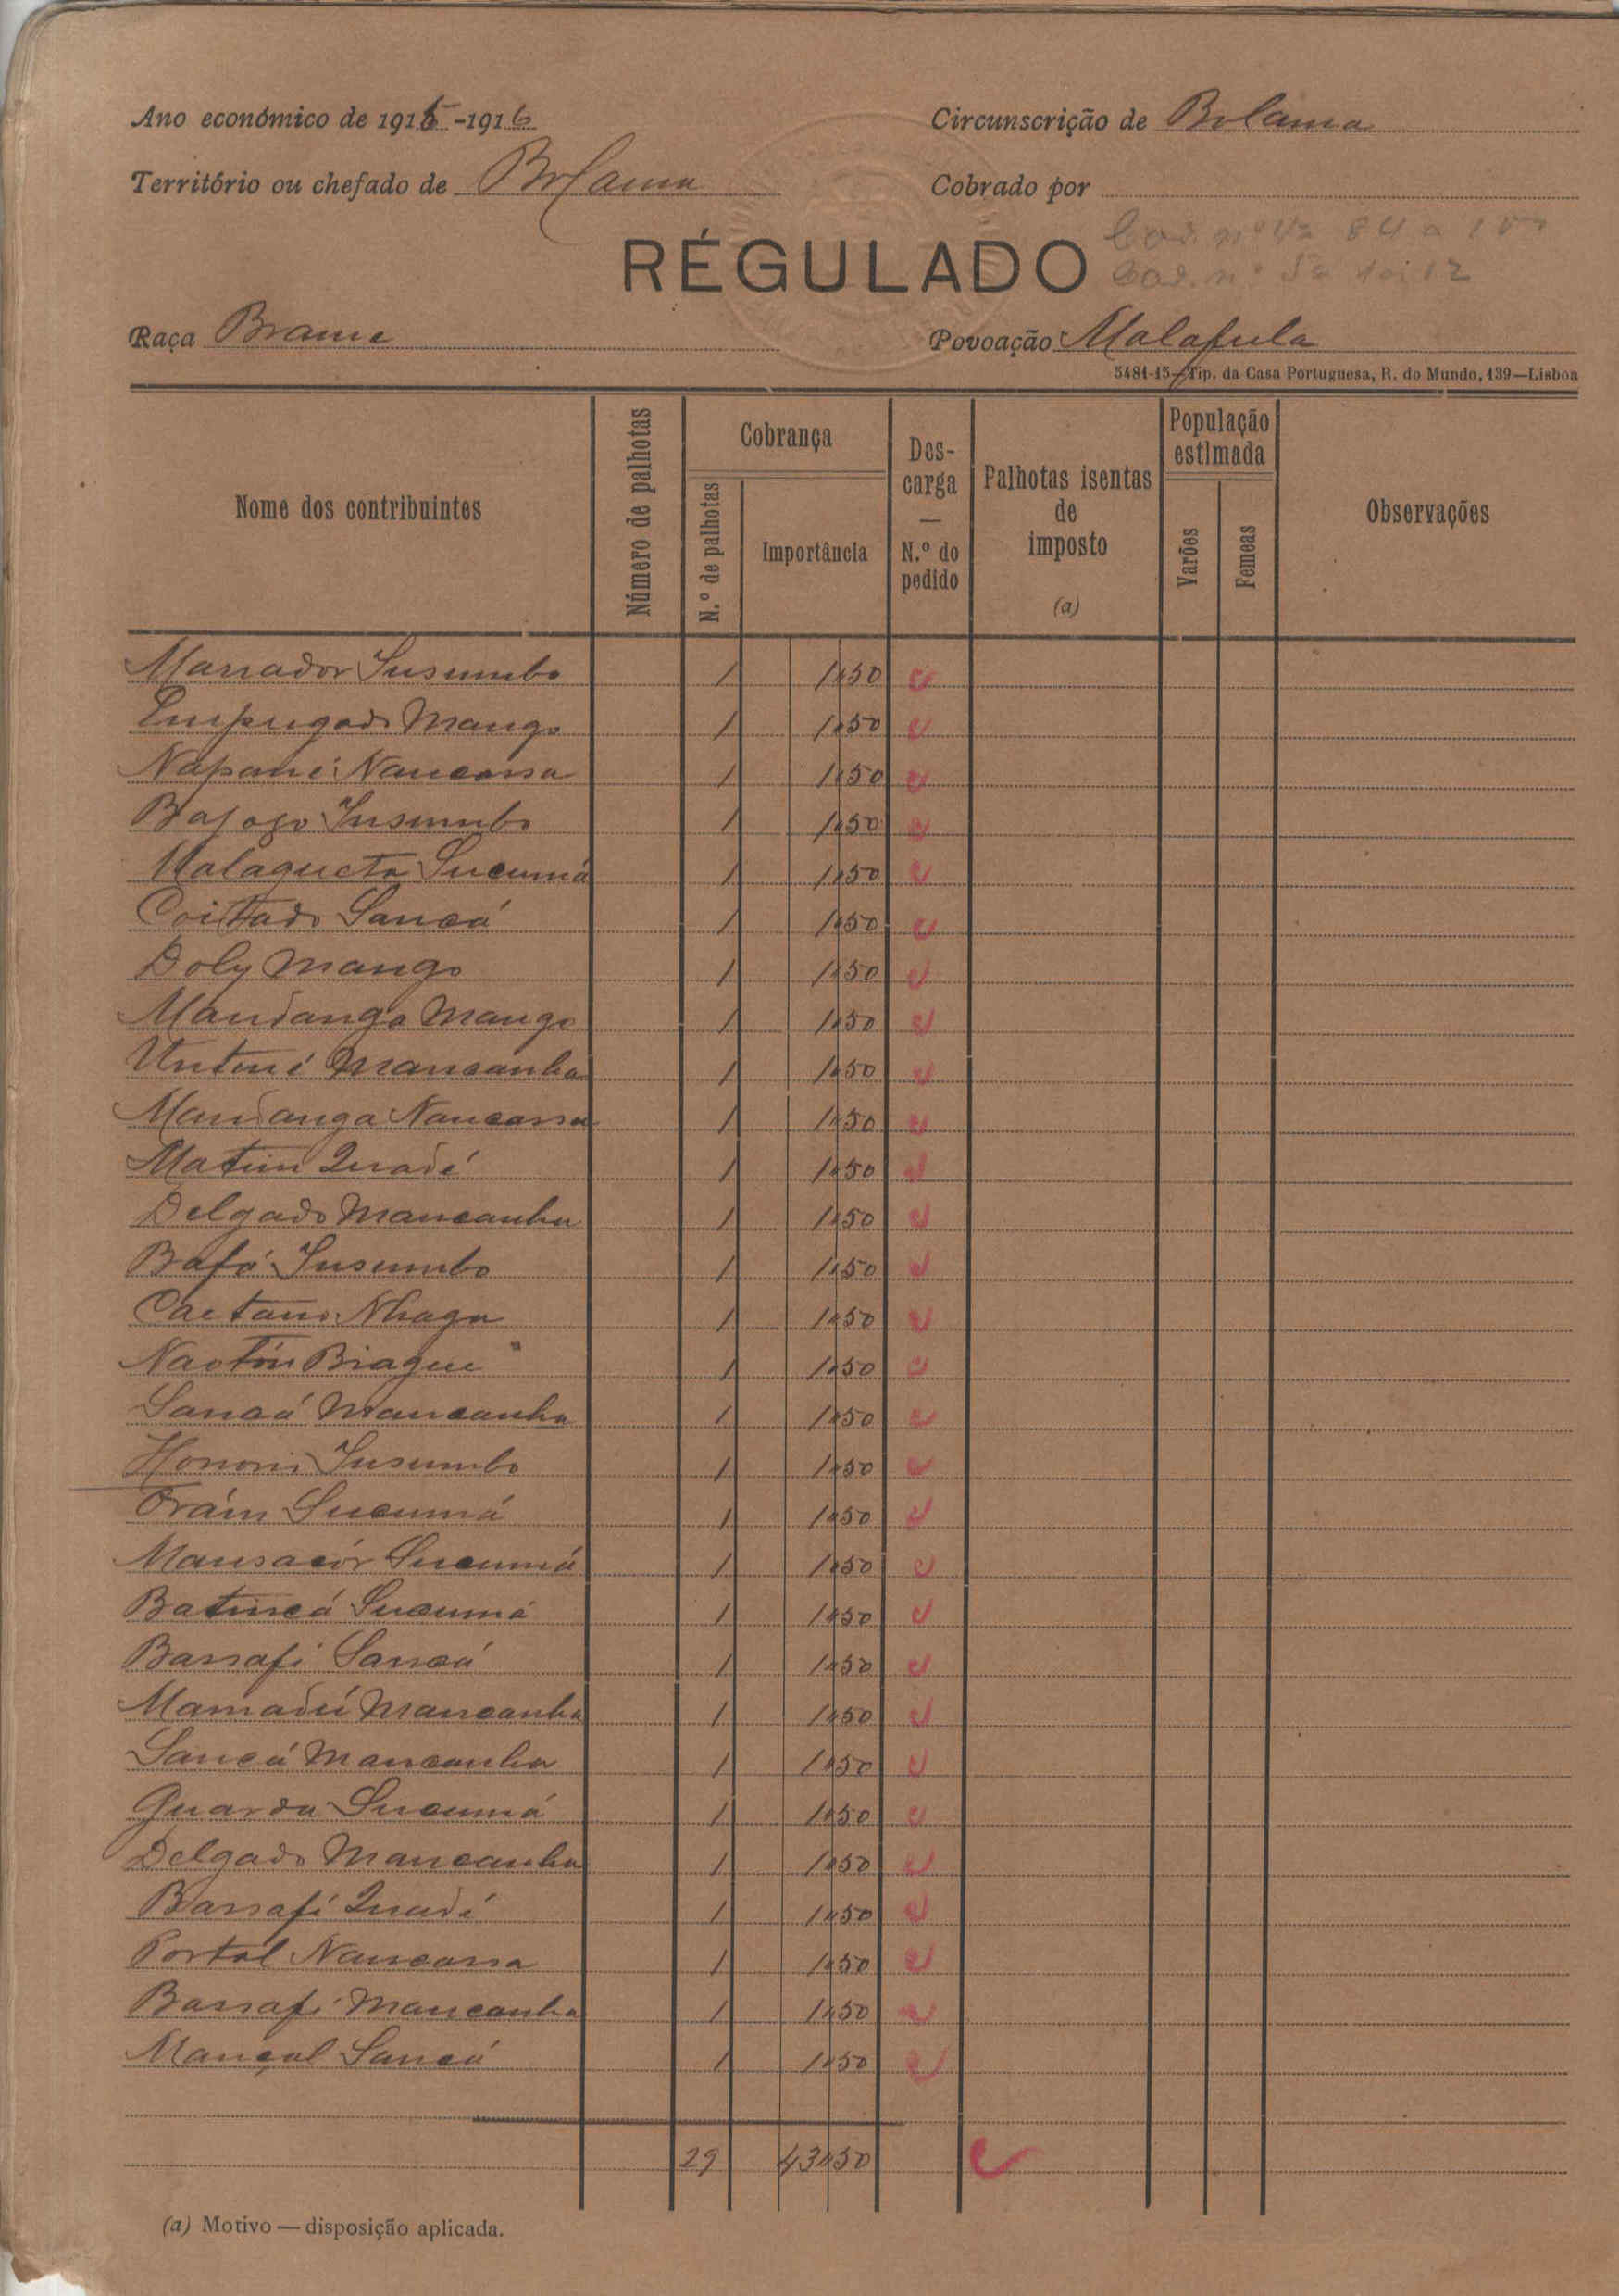 Ano económico de 1915-1916
Circunscrição de Bolama
Território ou chefado de Bolama
Cobrado por
RÉGULADO
Raça Brame
Povoação Malafula
5481-15—Tip. da Casa Portuguesa, R. do Mundo, 139—Lisboa
Nome dos contribuintes
Número de palhotas
Cobrança
N.º de palhotas
Importância
Descarga — N.º do pedido
Palhotas isentas de imposto (a)
População estimada
Varões
Femeas
Observações
Marrador Insumbo 1 1$50
Mango 1 1$50
Napané Nancassa 1 1$50
Bajogo Insumbo 1 1$50
Malagueta Sucumá 1 1$50
Coitado Sancá 1 1$50
Doly Mango 1 1$50
Mandanga Mango 1 1$50
Untiné Mancanha 1 1$50
Mandanga Nancassa 1 1$50
Matim Quadé 1 1$50
Delgado Mancanha 1 1$50
Bafó Insumbo 1 1$50
Caetano Nhaga 1 1$50
Biague 1 1$50
Sancá Mancanha 1 1$50
Honorio Insumbo 1 1$50
Sucumá 1 1$50
Mansacór Sucumá 1 1$50
Batincá Sucumá 1 1$50
Bassafi Sancá 1 1$50
Mamadú Mancanha 1 1$50
Sancá Mancanha 1 1$50
Guarda Sucumá 1 1$50
Delgado Mancanha 1 1$50
Bassafi Quadé 1 1$50
Portal Nancassa 1 1$50
Bassafi Mancanha 1 1$50
Mançal Sancá 1 1$50
29 43$50
(a) Motivo — disposição aplicada.